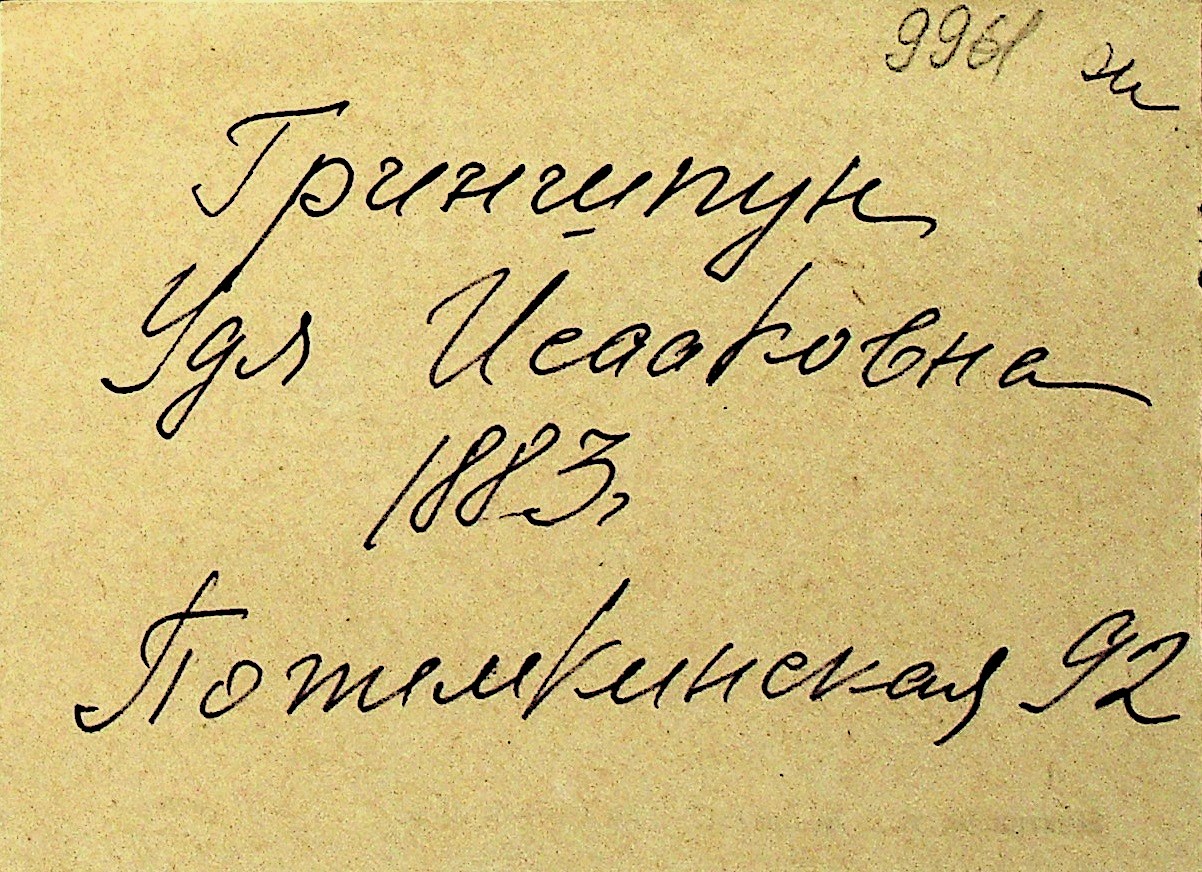 9961 ж
Гриншпун
Удля Исааковна
1883,
Потемкинская 92